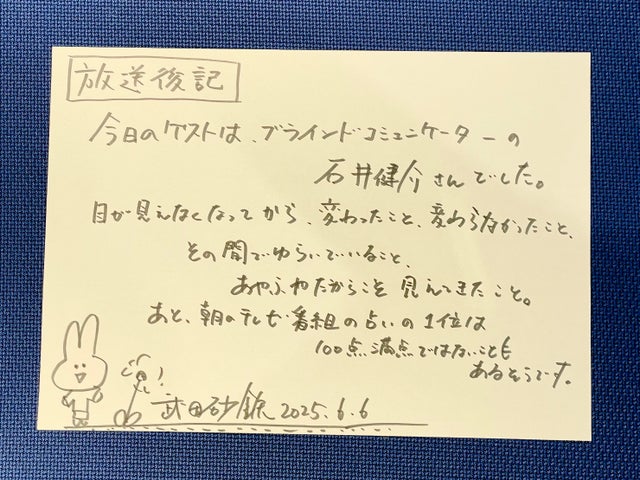 放送後記
今日のゲストは、ブラインドコミュニケーターの
石井健介さんでした。
目が見えなくなってから、変わったこと、変わらなかったこと、
その間でゆらいでいること、
あやふやだからこそ見えてきたこと。
あと、朝のテレビ番組の占いの1位は
100点満点ではないことも
あるそうです。
武田砂鉄 2025.6.6